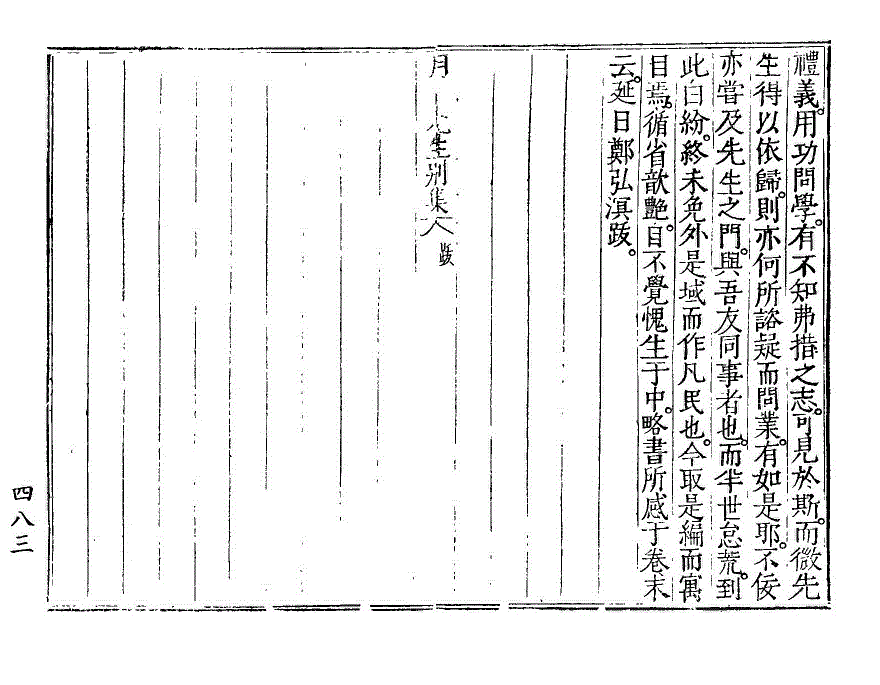 禮義。用功問學。有不知弗措之志。可見於斯。而微先
生得以依歸。則亦何所諮疑而問業。有如是耶。不佞
亦嘗及先生之門。與吾友同事者也。而半世怠荒。到
此白紛。終未免外是域而作凡民也。今取是編而寓
目焉。循省歆艶。自不覺愧生于中。略書所感于卷末
云。延日鄭弘溟跋。
月 先生別集 跋
四八三